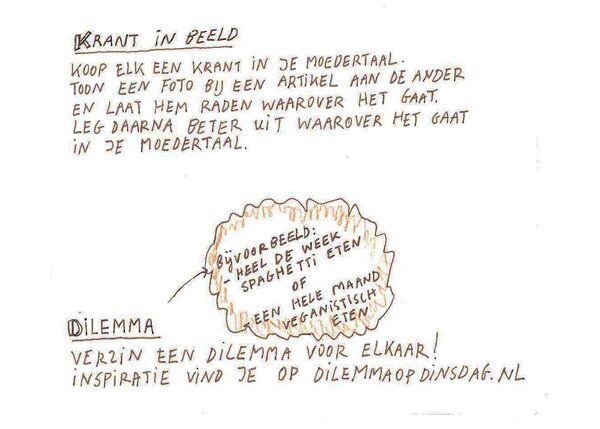 KRANT IN BEELD
KOOP ELK EEN KRANT IN JE MOEDERTAAL.
TOON EEN FOTO BIJ EEN ARTIKEL AAN DE ANDER
EN LAAT HEM RADEN WAAROVER HET GAAT.
LEG DAARNA BETER UIT WAAROVER HET GAAT
IN JE MOEDERTAAL.
BIJVOORBEELD:
- HEEL DE WEEK
SPAGHETTI ETEN
OF
- EEN HELE MAAND
VEGANISTISCH
ETEN
DILEMMA
VERZIN EEN DILEMMA VOOR ELKAAR!
INSPIRATIE VIND JE OP DILEMMAOPDINSDAG.NL